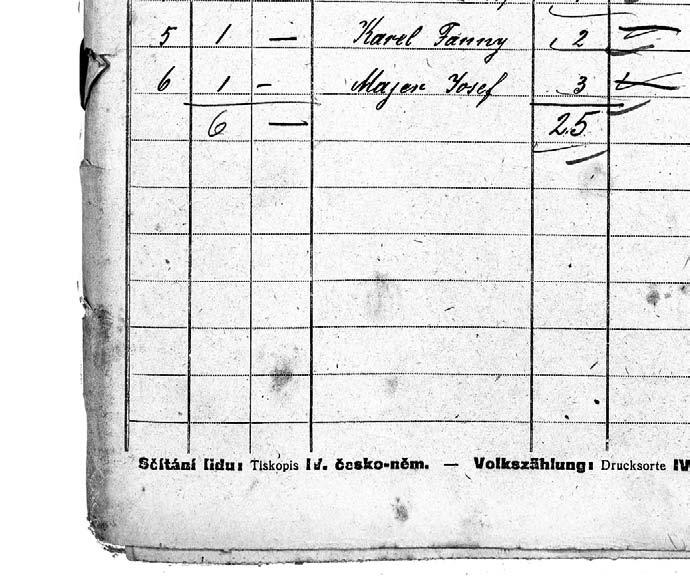 5 1 — Karel Fanny 2
6 1 - Majer Josef 3
6 — 25
Sčítání lidu: Tiskopis IV. česko-něm. — Volkszählung: Drucksorte IV